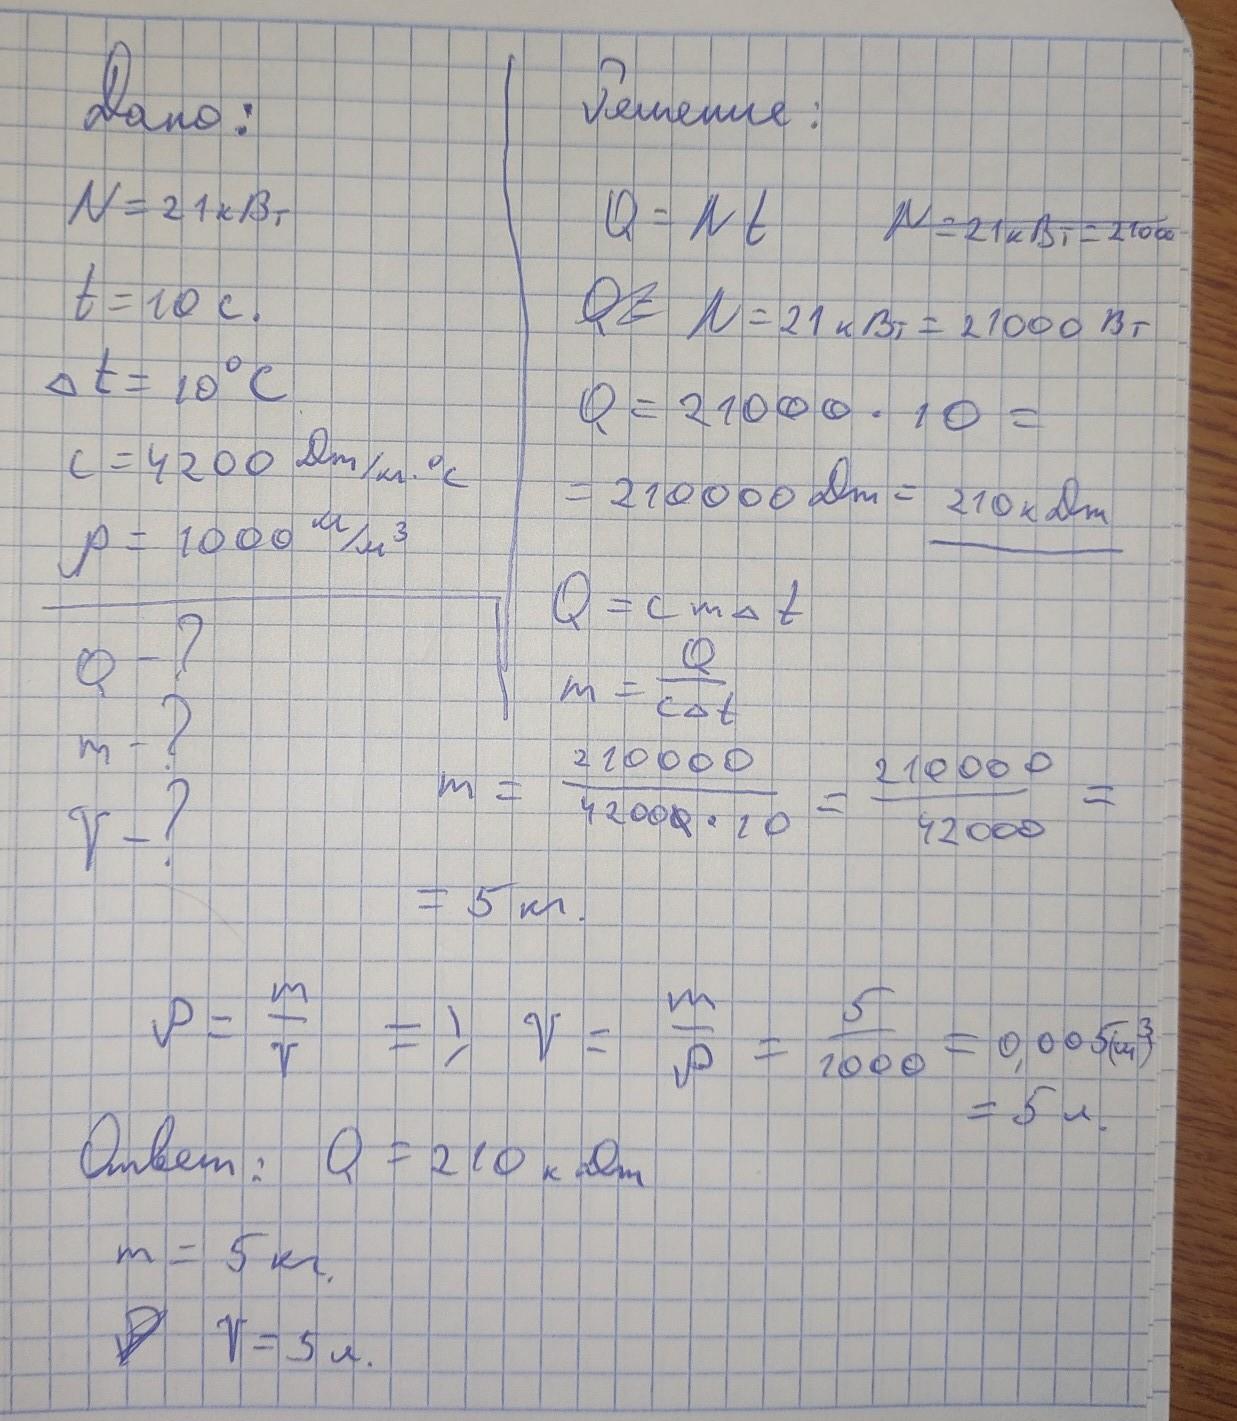 Дано:
N = 21 кВт
t = 10 с.
Δt = 10°C
c = 4200 Дж/кг·°C
ρ = 1000 кг/м³
Q - ?
m - ?
V - ?
Решение:
Q = Nt N = 21 кВт = 21000
Q = N = 21 кВт = 21000 Вт
Q = 21000 · 10 =
= 210000 Дж = 210 кДж
Q = c m Δt
m = Q / cΔt
m = 210000 / 4200 · 10 = 210000 / 42000 =
= 5 кг.
ρ = m / V => V = m / ρ = 5 / 1000 = 0,005 (м³)
= 5 л.
Ответ: Q = 210 кДж
m = 5 кг.
V = 5 л.